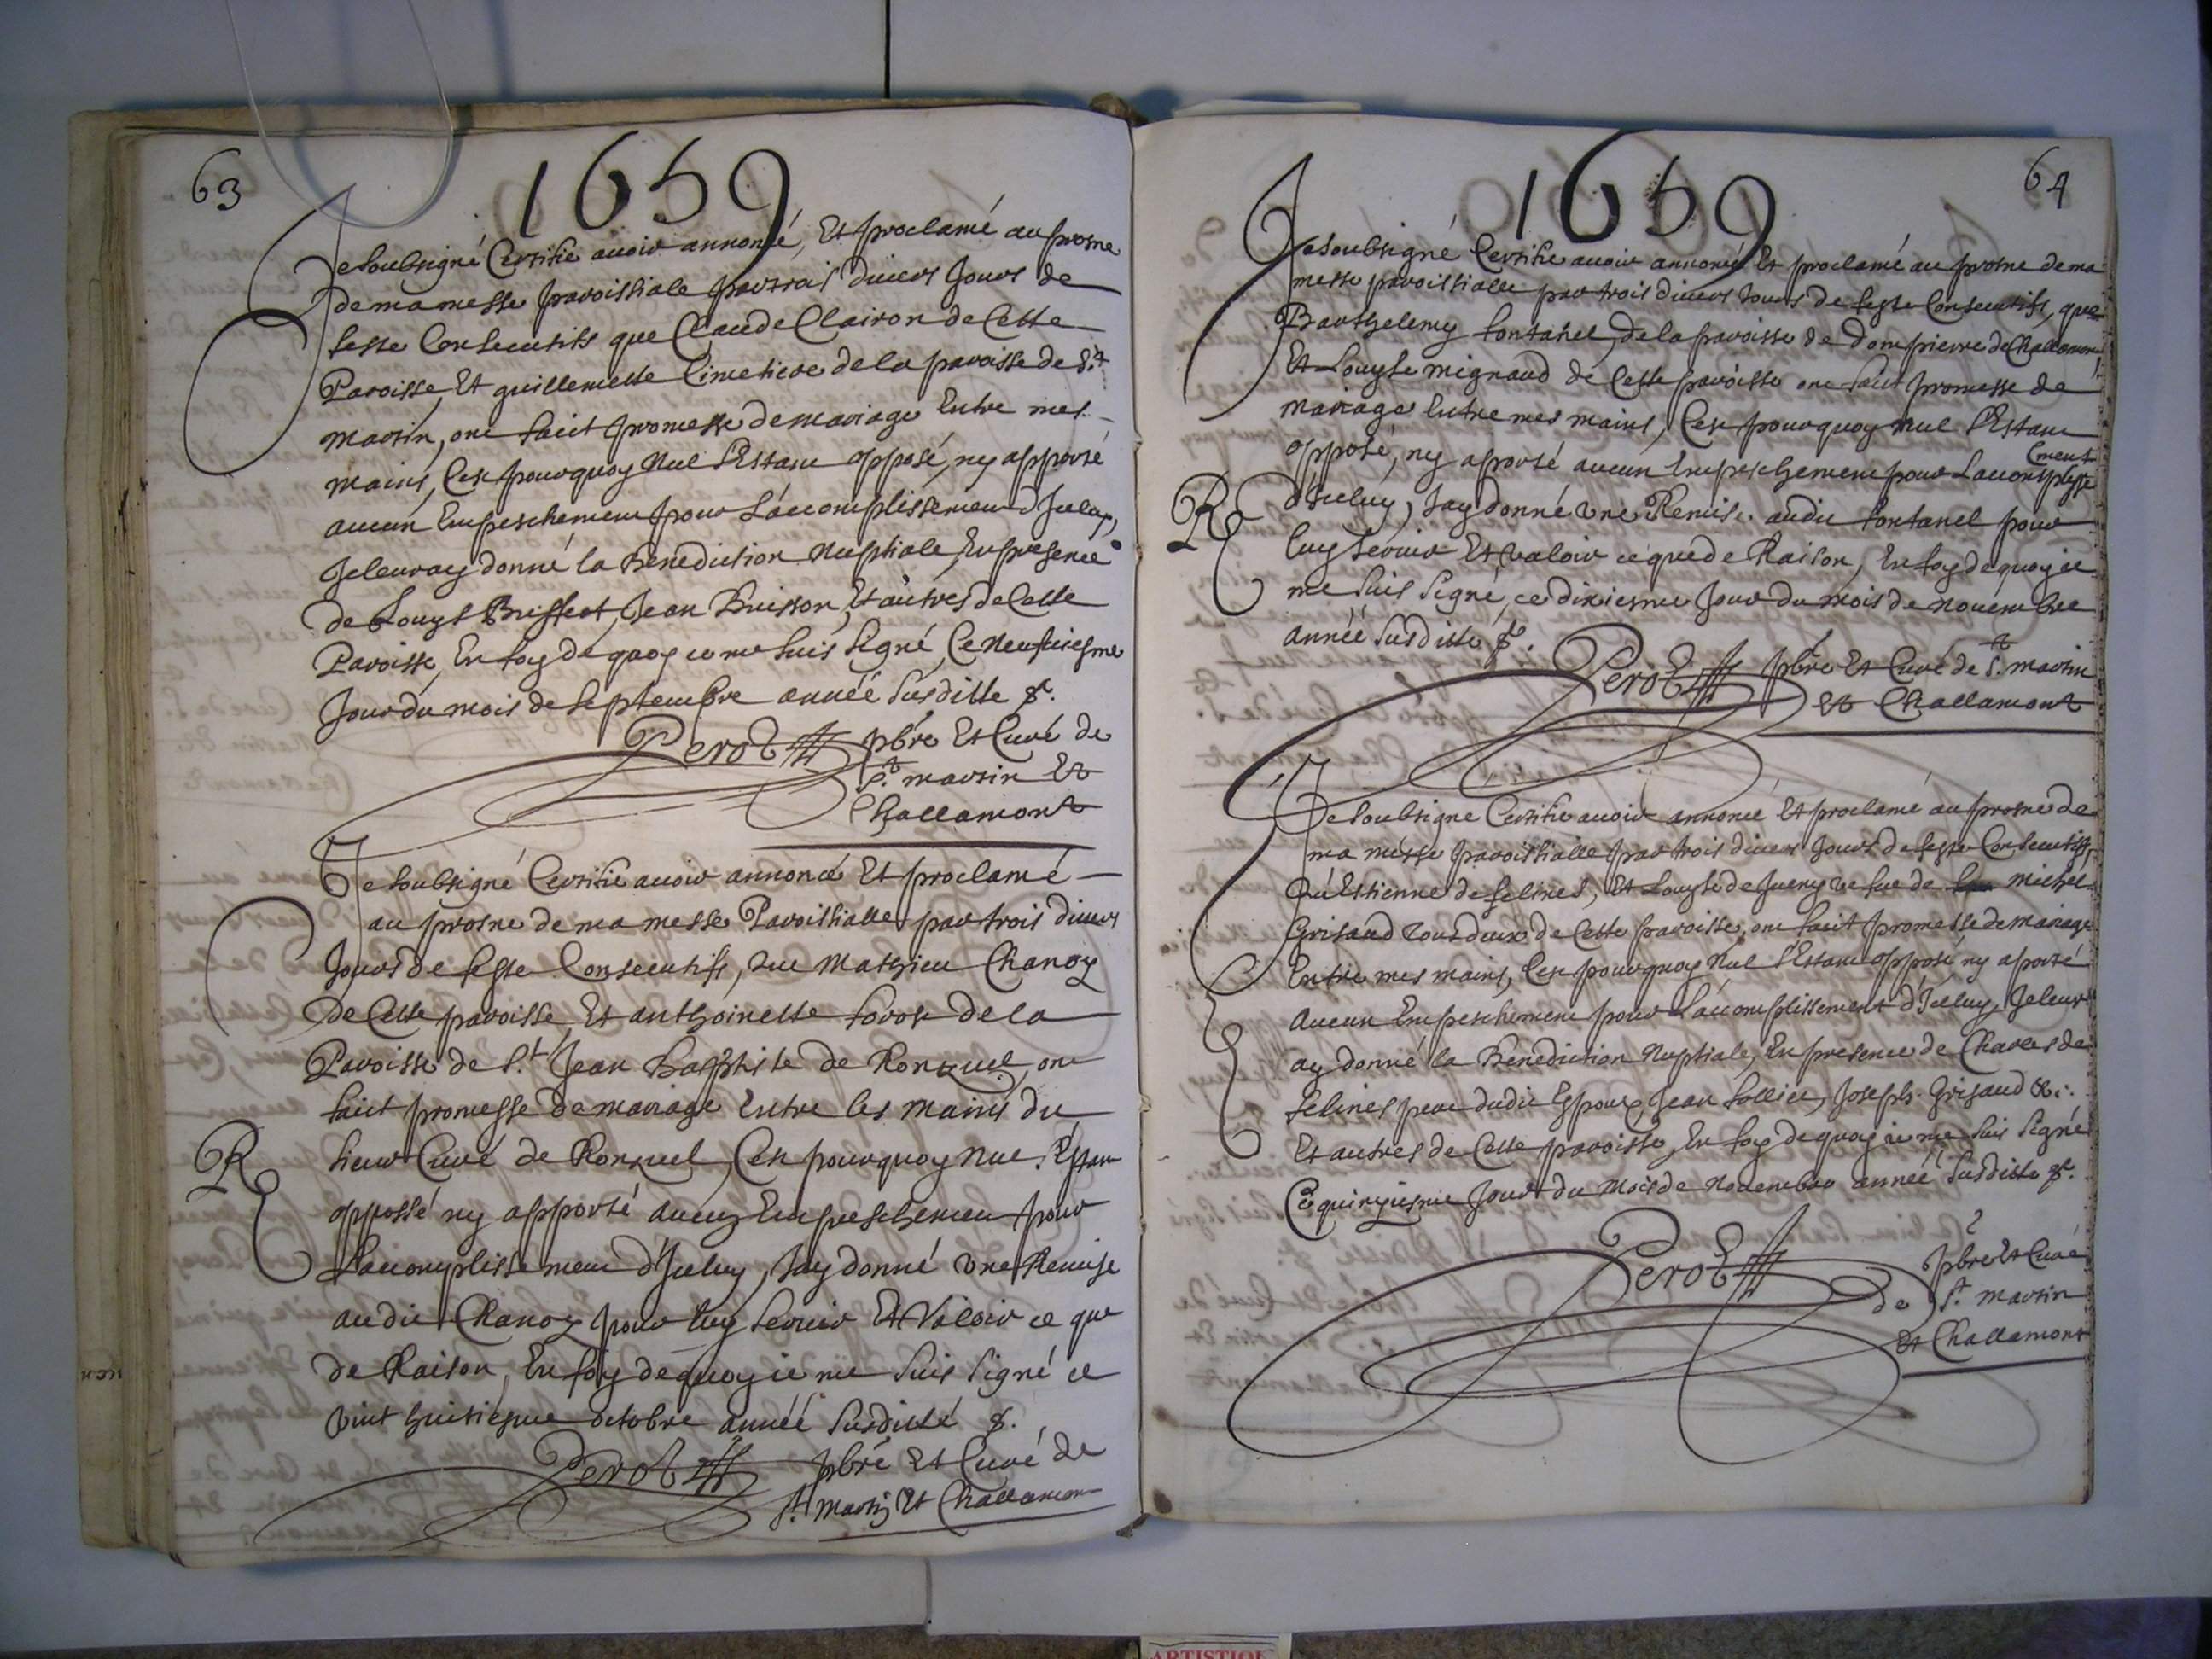 63
1659
Je soubsigné Certifie avoir annoncé, Et proclamé au prosne
de ma messe paroissiale par trois divers Jours de
feste Consecutifs que Claude Clairon de Cette
Paroisse, Et guillemette Cimetiere de la paroisse de St
martin, ont faict promesse de mariage Entre mes
mains, Cest pourquoy Nul s'Estant opposé, ny apporté
aucun Empeschement pour L'accomplissement d'Iceluy,
Je leur ay donné la Benediction Nuptiale, En presence
de Louys Brissert, Jean Buisson, Et autres de Cette
Paroisse, En foy de quoy ie me suis signé, Ce Neufuiesme
Jour du mois de septembre année susditte &c.
Perot pbre Et Curé de
St. martin Et
Challamont
Je soubsigné Certifie avoir annoncé Et proclamé
au prosne de ma messe Paroissialle par trois divers
Jours de feste Consecutifs, que Mathieu Chanoy
de Cette paroisse, Et anthoinette favor de la
Paroisse de St. Jean Baptiste de Ronzuel, ont
faict promesse de mariage Entre les mains du
R sieur Curé de Ronzuel, Cest pourquoy Nul s'Estant
opposé ny apporté aucun Empeschement pour
L'accomplissement d'Iceluy, Jay donné une Remise
audit Chanoy pour luy servir Et Valoir ce que
de Raison, En foy de quoy ie me suis signé ce
vint huitiesme octobre année susditté &.
Perot pbre Et Curé de
St. Martin Et Challamont
64
1659
Je soubsigné Certifie avoir annoncé Et proclamé au prosne de ma
messe paroissialle par trois divers Jours de feste Consecutifs, que
Barthelemy fontanel, de la paroisse de Dompierre de Challamont,
Et Louyse mignaud de Cette paroisse ont faict promesse de
mariage Entre mes mains, Cest pourquoy Nul s'Estant
opposé, ny aporté aucun Empeschement pour Laccomplisse
ment
R d'Iceluy, Jay donné une Remise audit fontanel pour
luy servir Et valoir ce que de Raison, En foy de quoy ie
me suis signé, ce dixiesme Jour du mois de novembre
année susditte &c.
Perot pbre Et Curé de St. martin
Et Challamont
Je soubsigne Certifie avoir annoncé Et proclamé au prosne de
ma messe paroissialle par trois divers Jours de feste Consecutifs,
qu'Estienne de felines, Et Louyse de Juery vefue de Michel
Grisaud tous deux de Cette paroisse, ont faict promesse de mariage
Entre mes mains, Cest pourquoy Nul s'Estant opposé ny aporté
aucun Empeschement pour L'accomplissement d'Iceluy, Je leur
ay donné la Benediction Nuptiale, En presence de Charles de
felines pere dudit Espoux, Jean follier, Joseph Grisaud
Et autres de Cette paroisse, En foy de quoy ie me suis signé
Ce quinziesme Jour du Mois de Novembre année susditte &c.
Perot pbre Et Curé
de St. martin
Et Challamont
ARTISTIQUE